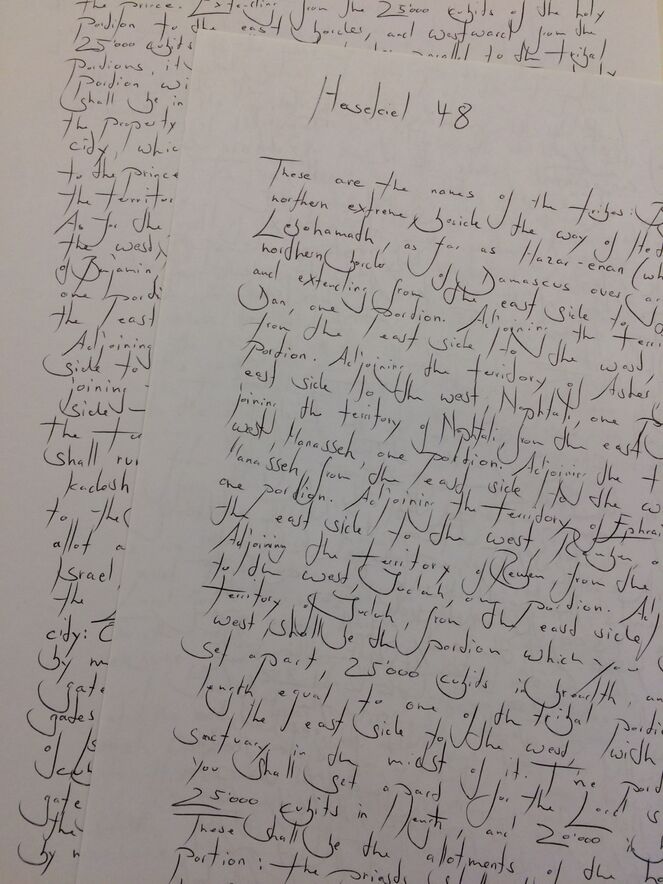 the prince. Extending from the 25'000 cubits of the holy
portion to the east border, and westward from the
25'000 cubits parallel to the tribal
portions, it
portion wi
shall be in
the property
city, whic
to the prince
the territor
As for the
the west,
of Benjamin
one porti
the east
Adjoining
side to
joining
side
the
shall run
kadesh
to the
allot a
Israel
the
city:
by m
gate
gates
of
gate
the
by n
Hesekiel 48
These are the names of the tribes:
northern extreme, beside the way of Het
Lebohamath, as far as Hazar-enan (wh
northern border of Damascus over
and extending from the east side to
Dan, one portion. Adjoining the terri
from the east side to the west,
portion. Adjoining the territory of Asher,
east side to the west, Naphtali, one p
joining the territory of Naphtali, from the east
west, Manasseh, one portion. Adjoining the t
Manasseh, from the east side to the w
one portion. Adjoining the territory of Ephrai
the east side to the west, Reuben, o
Adjoining the territory of Reuben, from the
to the west, Judah, one portion. Adj
territory of Judah, from the east side
west, shall be the portion which you
set apart, 25'000 cubits in breadth, an
length equal to one of the tribal portio
the east side to the west, with
sanctuary in the midst of it. The port
you shall set apart for the Lord is
25'000 cubits in length, and 20'000 in
These shall be the allotments of the ho
portion: the priests shall